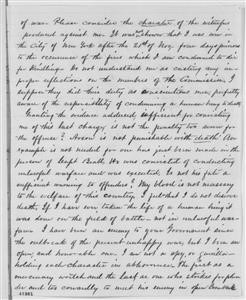 of war. Please consider the character of the witnesses
produced against me. It was shown that I was now in
the City of New York after the 28th of Nov. four days previous
to the occurence of the fires which I am condemned to die
for Kindling. Do not understand me as casting any im-
proper reflections on the members of the Commission, I
suppose they did their duty as conscientious men perfectly
aware of the responsibility of condemning a human being to death
Granting the evidence adduced sufficient for convicting
me of this last charge is not the penalty too severe for
the offence? Arson is not punishable with death. An
example is not needed for one has just been made in the
person of Capt Beall. He was convicted of conducting
unlawful warfare and was executed. Is not his fate a
sufficient warning to offenders? My blood is not necessary
to the welfare of this country. I feel that I do not deserve
death. If I have ever taken the life of a human being it
was done on the field of battle - not in unlawful war-
fare. I have been an enemy to your Government since
the outbreak of the present unhappy war but I have been an
open and honorable one. I am not a spy, or guerilla
holding each character in abhorrence. The first as a
mercenary wretch and the last as one who strikes for plun-
der and too cowardly to meet his enemy in open
41361